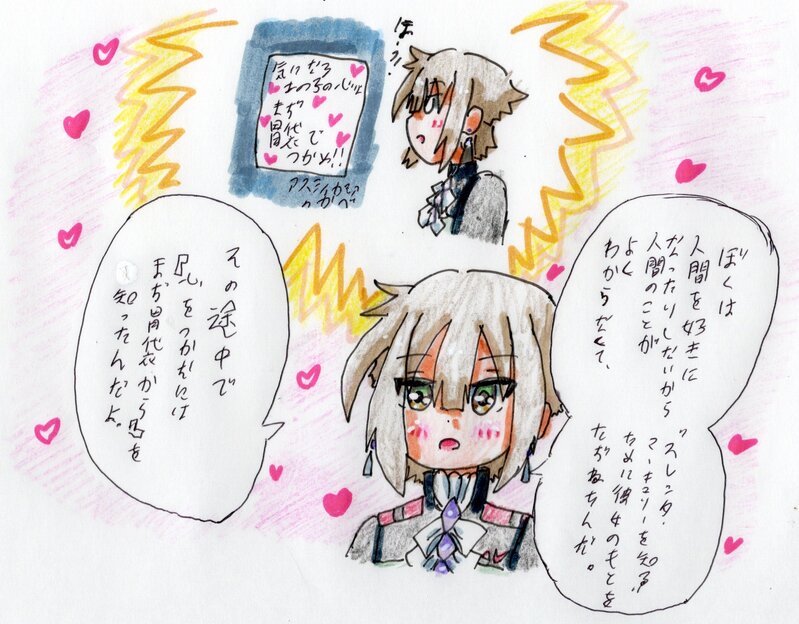 気になる
あの子の心は
まず
胃袋で
つかめ!!
ぼくは
人間を好きに
なったりしないから
人間のことが
よく
わからなくて、
スレッタ・
マーキュリーを知る
ために彼女のもとを
たずねたんだ。
その途中で
心をつかむには
まず胃袋から
知ったんだよ。